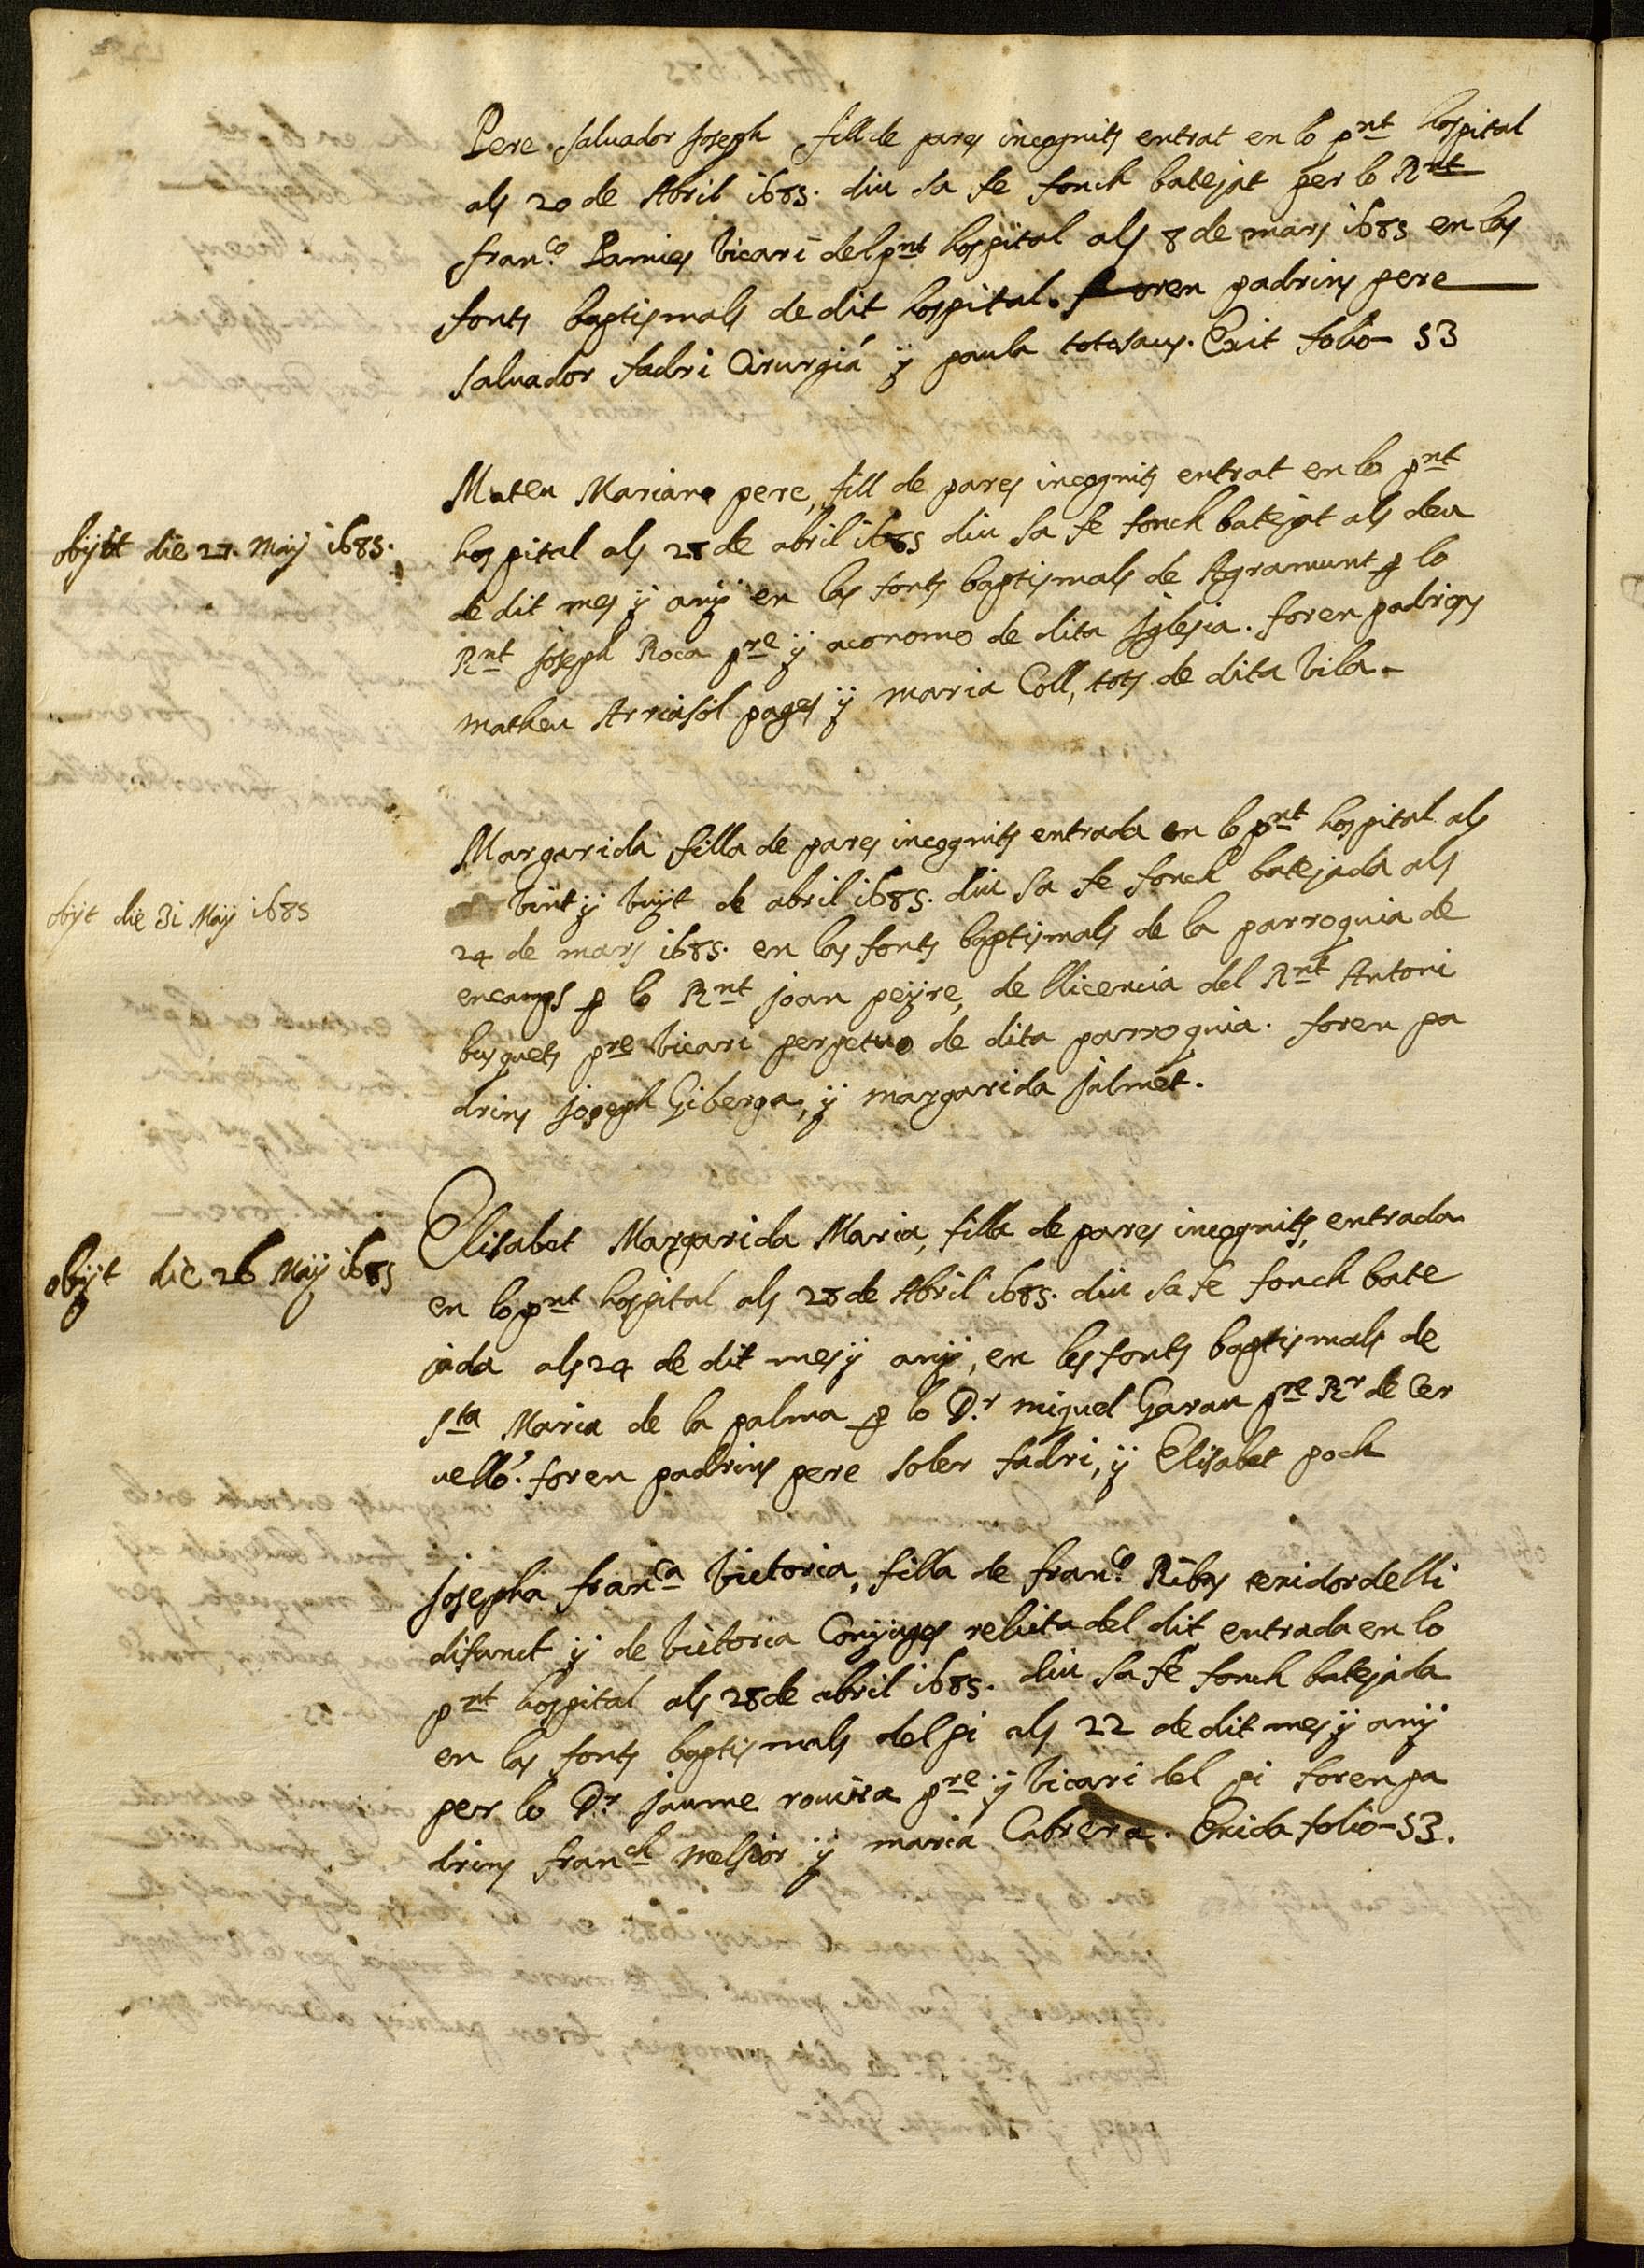 Pere Saluador Joseph fill de pares incognits entrat en lo pnt hospital
als 20 de Abril 1685. diu sa fe fonch batejat per lo Rnt
Franco Pamies Vicari del pnt hospital als 8 de mars 1685 en las
fonts baptismals de dit hospital. foren padrins pere
saluador fadri Cirurgiá y paula totesaus. Exit folio - 53
Mateu Mariano pere, fill de pares incognits entrat en lo pnt
obyit die 27. Maij 1685.
hospital als 28 de abril 1685 diu sa fe fonch batejat als deu
de dit mes y any en las fonts baptismals de Agramunt p lo
Rnt Joseph Roca pre y aconomo de dita Iglesia. foren padrins
matheu Arriasol pages y maria Coll, tots de dita Vila.
Margarida filla de pares incognits entrada en lo pnt hospital als
obyt die 31 Maij 1685
vint y vuyt de abril 1685. diu sa fe fonch batejada als
24 de mars 1685. en las fonts baptismals de la parroquia de
encamps p lo Rnt Joan peyre, de llicencia del Rnt Antoni
busquets pre Vicari perpetuo de dita parroquia. foren pa
drins Joseph Giberga, y margarida Jalmet.
Elisabet Margarida Maria, filla de pares incognits, entrada
obyt die 26 Maij 1685
en lo pnt hospital als 28 de Abril 1685. diu sa fe fonch bate
jada als 24 de dit mes y any, en les fonts baptismals de
Sta Maria de la palma p lo Dr miquel Garau pre Rr de Cer
uelló. foren padrins pere soler fadri, y Elisabet poch
Josepha Franca Victoria, filla de Franco Ribas texidor de lli
difunct y de Victoria Conyuges relicta del dit entrada en lo
pnt hospital als 28 de abril 1685. diu sa fe fonch batejada
en las fonts baptismals del pi als 22 de dit mes y any
per lo Dr Jaume rouira pre y Vicari del pi foren pa
drins franch Melsior y maria Cabrera. Exida folio - 53.